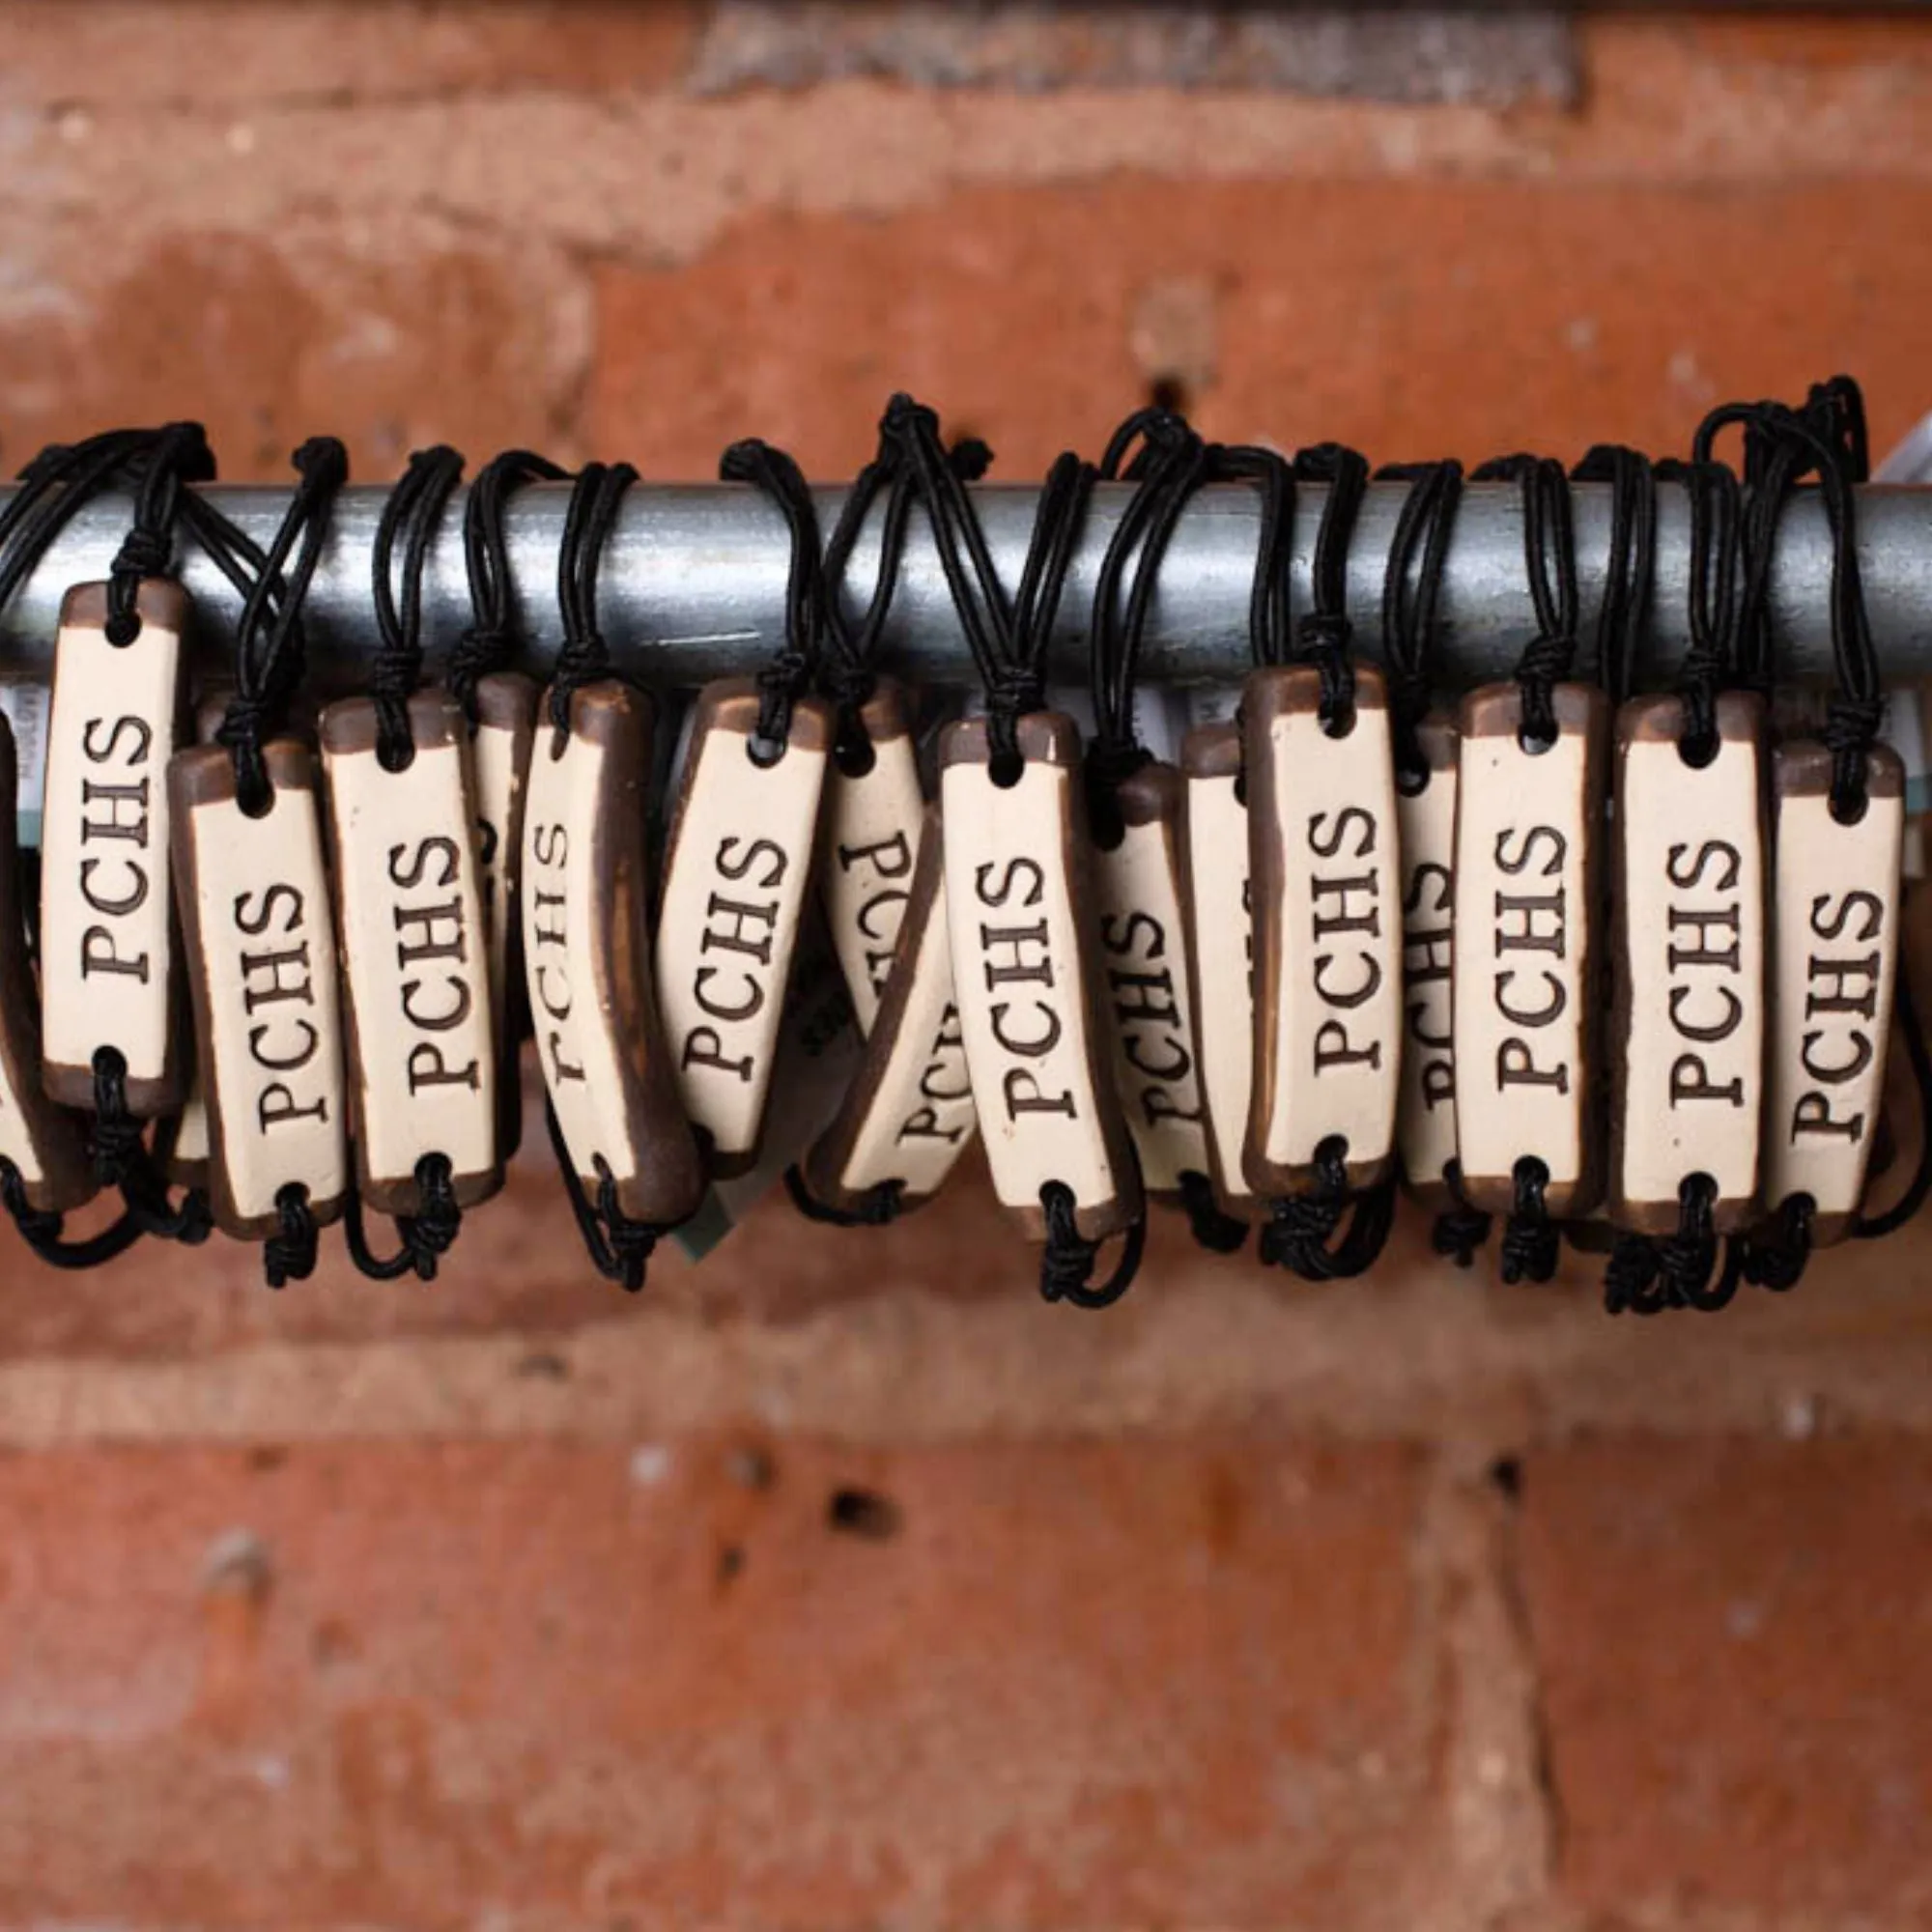 PCHS
PCHS
PCHS
PCHS
PCHS
PCHS
PCHS
PCHS
PCHS
PCHS
PCHS
PCHS